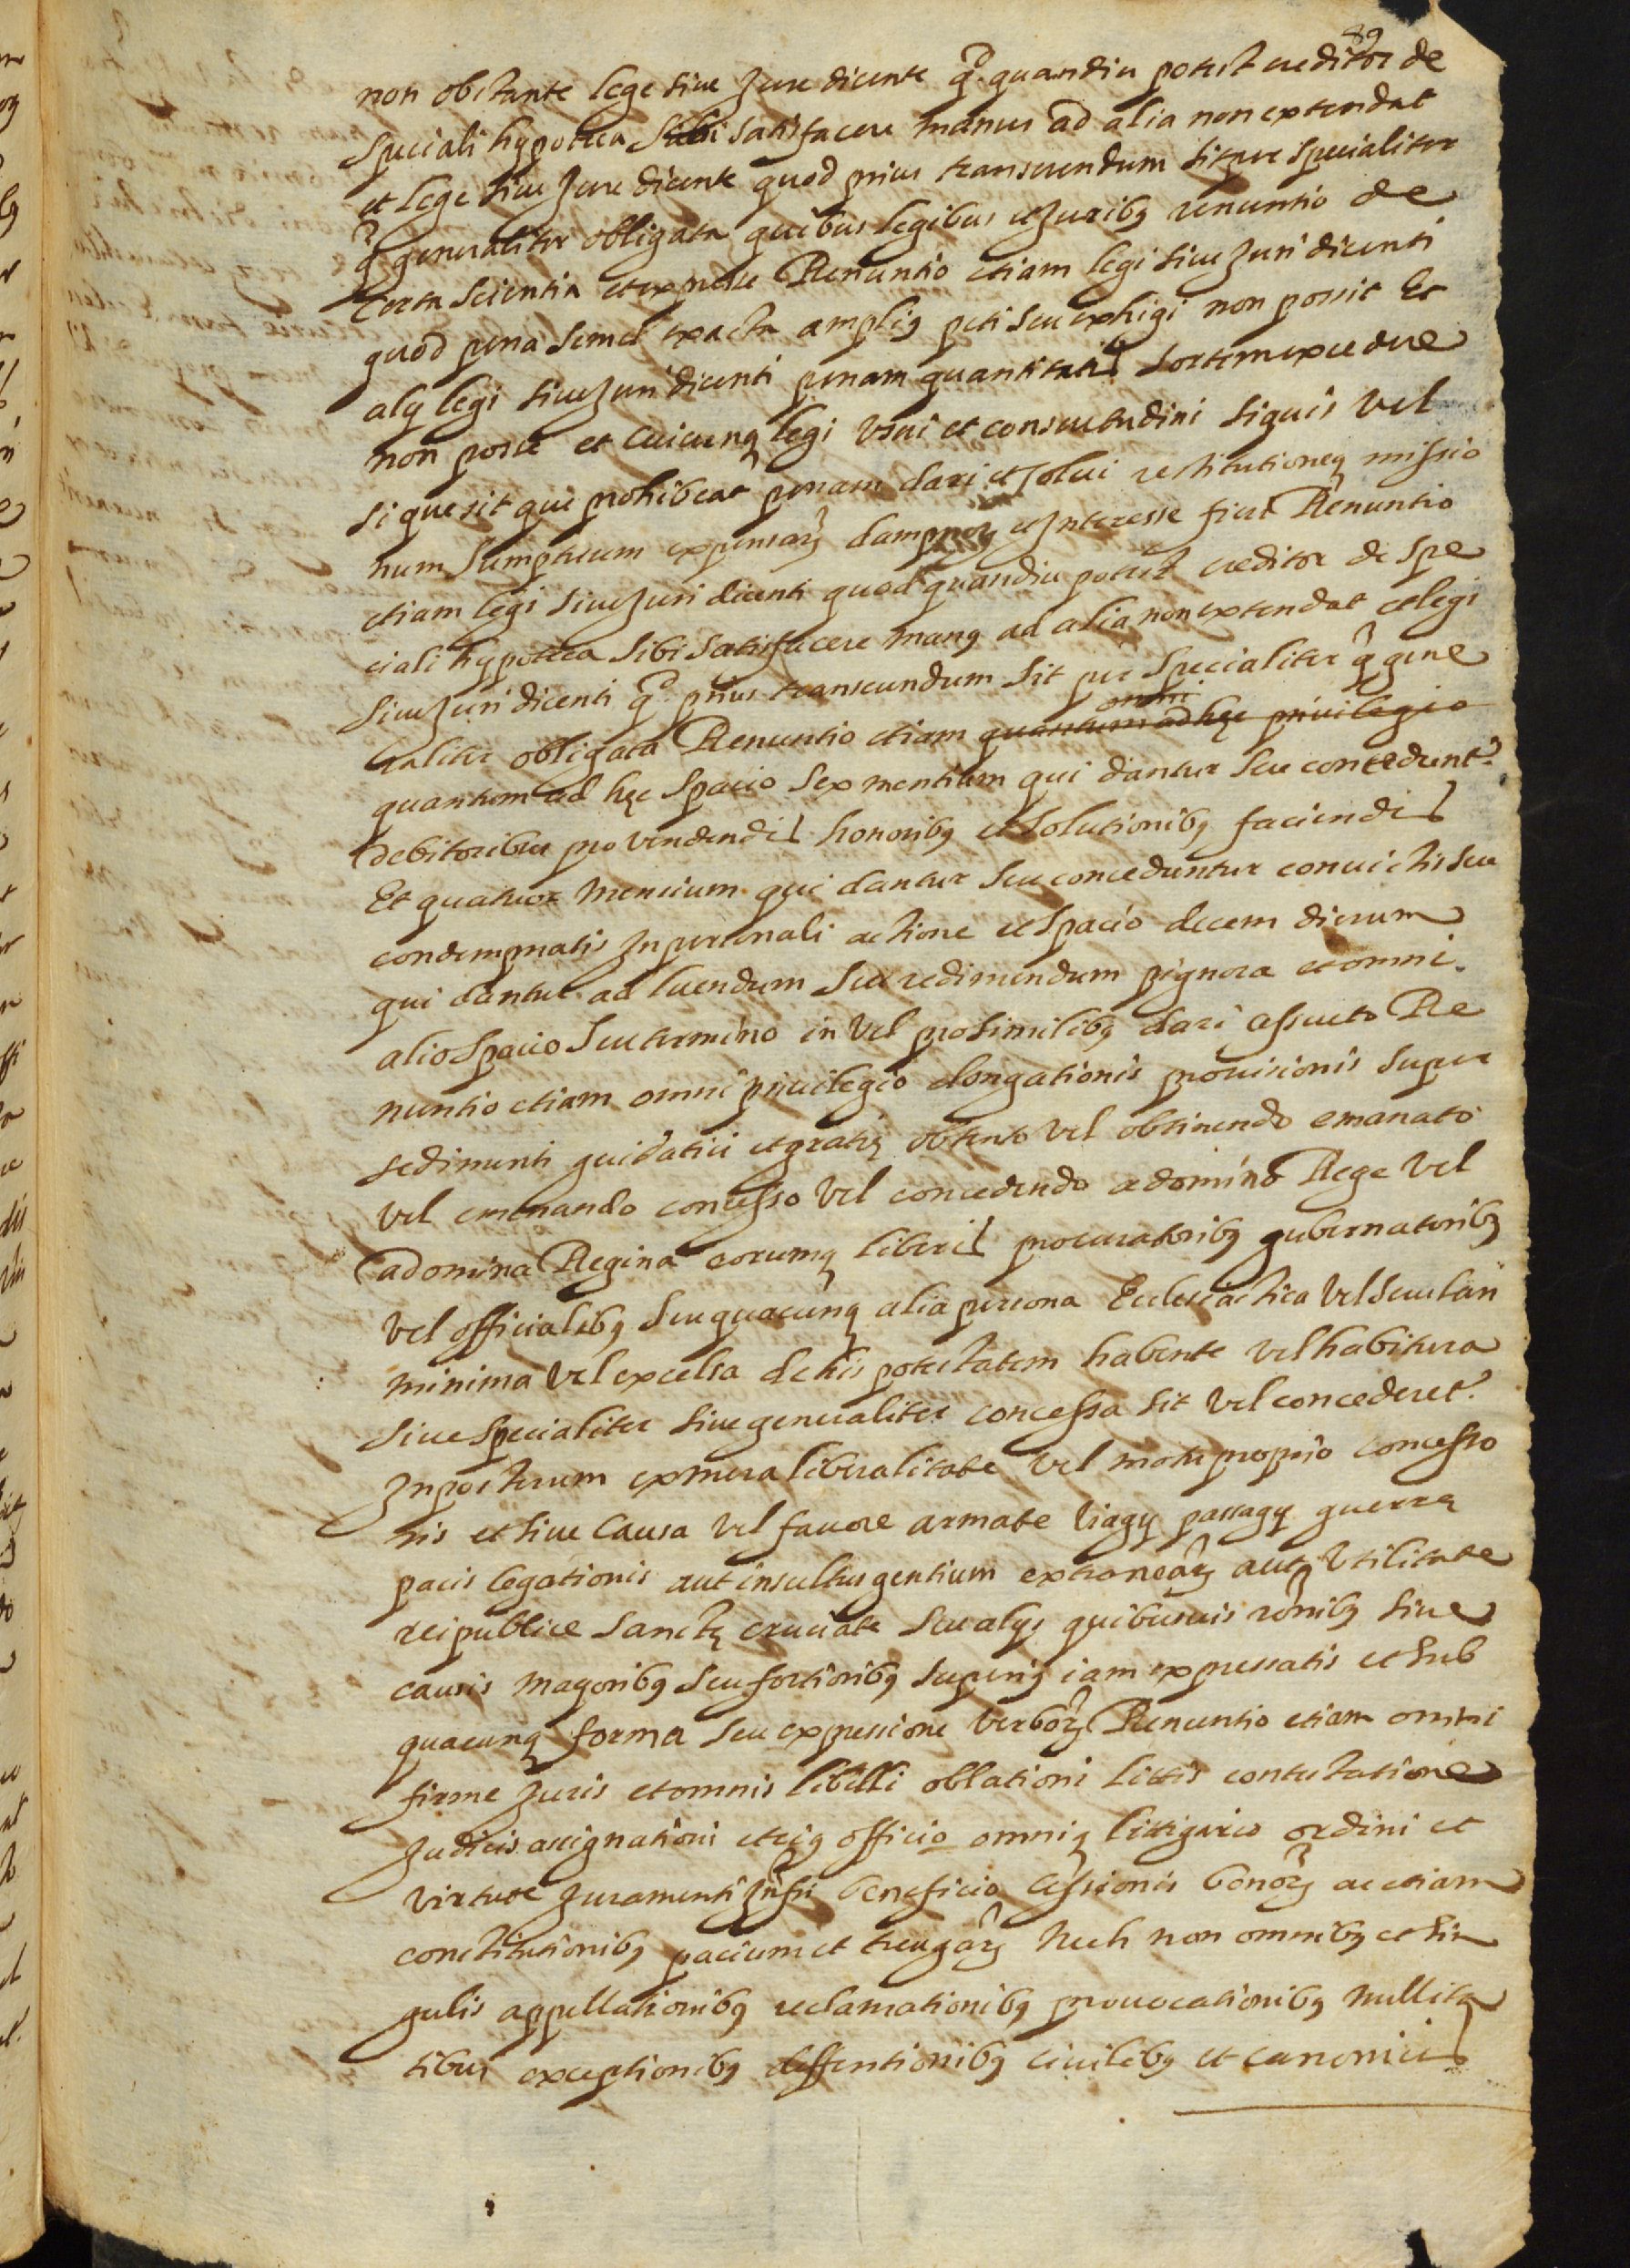 89
non obstante lege sive Jure dicente q.d quandiu poterit creditor de
speciali hypoteca sibi satisfacere manus ad alia non extendat
et lege sive Jure dicente quod prius transeundum sit per specialiter
q generaliter obligata quibus legibus et Juribus renuntio de
certa scientia et expresse Renuntio etiam legi sive Juri dicenti
quod pena semel exacta amplius peti seu exhigi non possit Et
alij legi sive Juri dicenti penam quantitatis sortem excedere
non posse et cuicunq legi usui et consuetudini siquis vel
si que sit que prohibeat penam dari et solvi restitutioneq missio
num sumptuum expensarum dampnorum et Interesse fieri Renuntio
etiam legi sive Juri dicenti quod quandiu poterit creditor de spe
ciali hypoteca sibi satisfacere manus ad alia non extendat et legi
sive Juri dicenti q.d prius transeundum sit per specialiter q gene
raliter obligata Renuntio etiam quantum ad hęc omni privilegio
quantum ad hęc spacio sex mensium qui dantur seu concedunt.r
debitoribus pro vendendis honoribus et solutionibus faciendis
Et quatuor mensium qui dantur seu conceduntur convictis seu
condempnatis In personali actione et spacio decem dierum
qui dantur ad luendum seu redimendum pignora et omni
alio spacio seu termino in vel pro similibus dari assueto Re
nuntio etiam omni privilegio elongationis provisionis super
sedimenti guidatici et gratię obtento vel obtinendo emanato
vel emanando concesso vel concedendo a domino Rege vel
a domina Regina eorumq liberis procuratoribus gubernatoribus
vel officialibus seu quacunq alia persona Ecclesiastica vel seculari
minima vel excelsa de his potestatem habente vel habitura
sive specialiter sive generaliter concessa sit vel concederet.r
In posterum ex mera liberalitate vel motu proprio concesso
nis et sive causa vel favore armate viagij passagij guerrę
pacis legationis aut insultus gentium extranearum aut utilitate
reipublice sanctę cruciate seu alijs quibusvis ronibus sive
causis majoribus seu fortioribus superius iam expressatis et sub
quacunq forma seu expressione verborum Renuntio etiam omni
firme Juris et omnis libelli oblationi littis contestatione
Judicis assignationi et eius officio omniq littigario ordini et
virtute Juramenti Infri beneficio cessionis bonorum ac etiam
constitutionibus pacium et treugarum Nech non omnibus et sin
gulis appellationibus reclamationibus provocationibus nullita
tibus exceptionibus deffentionibus civilibus et canonicis